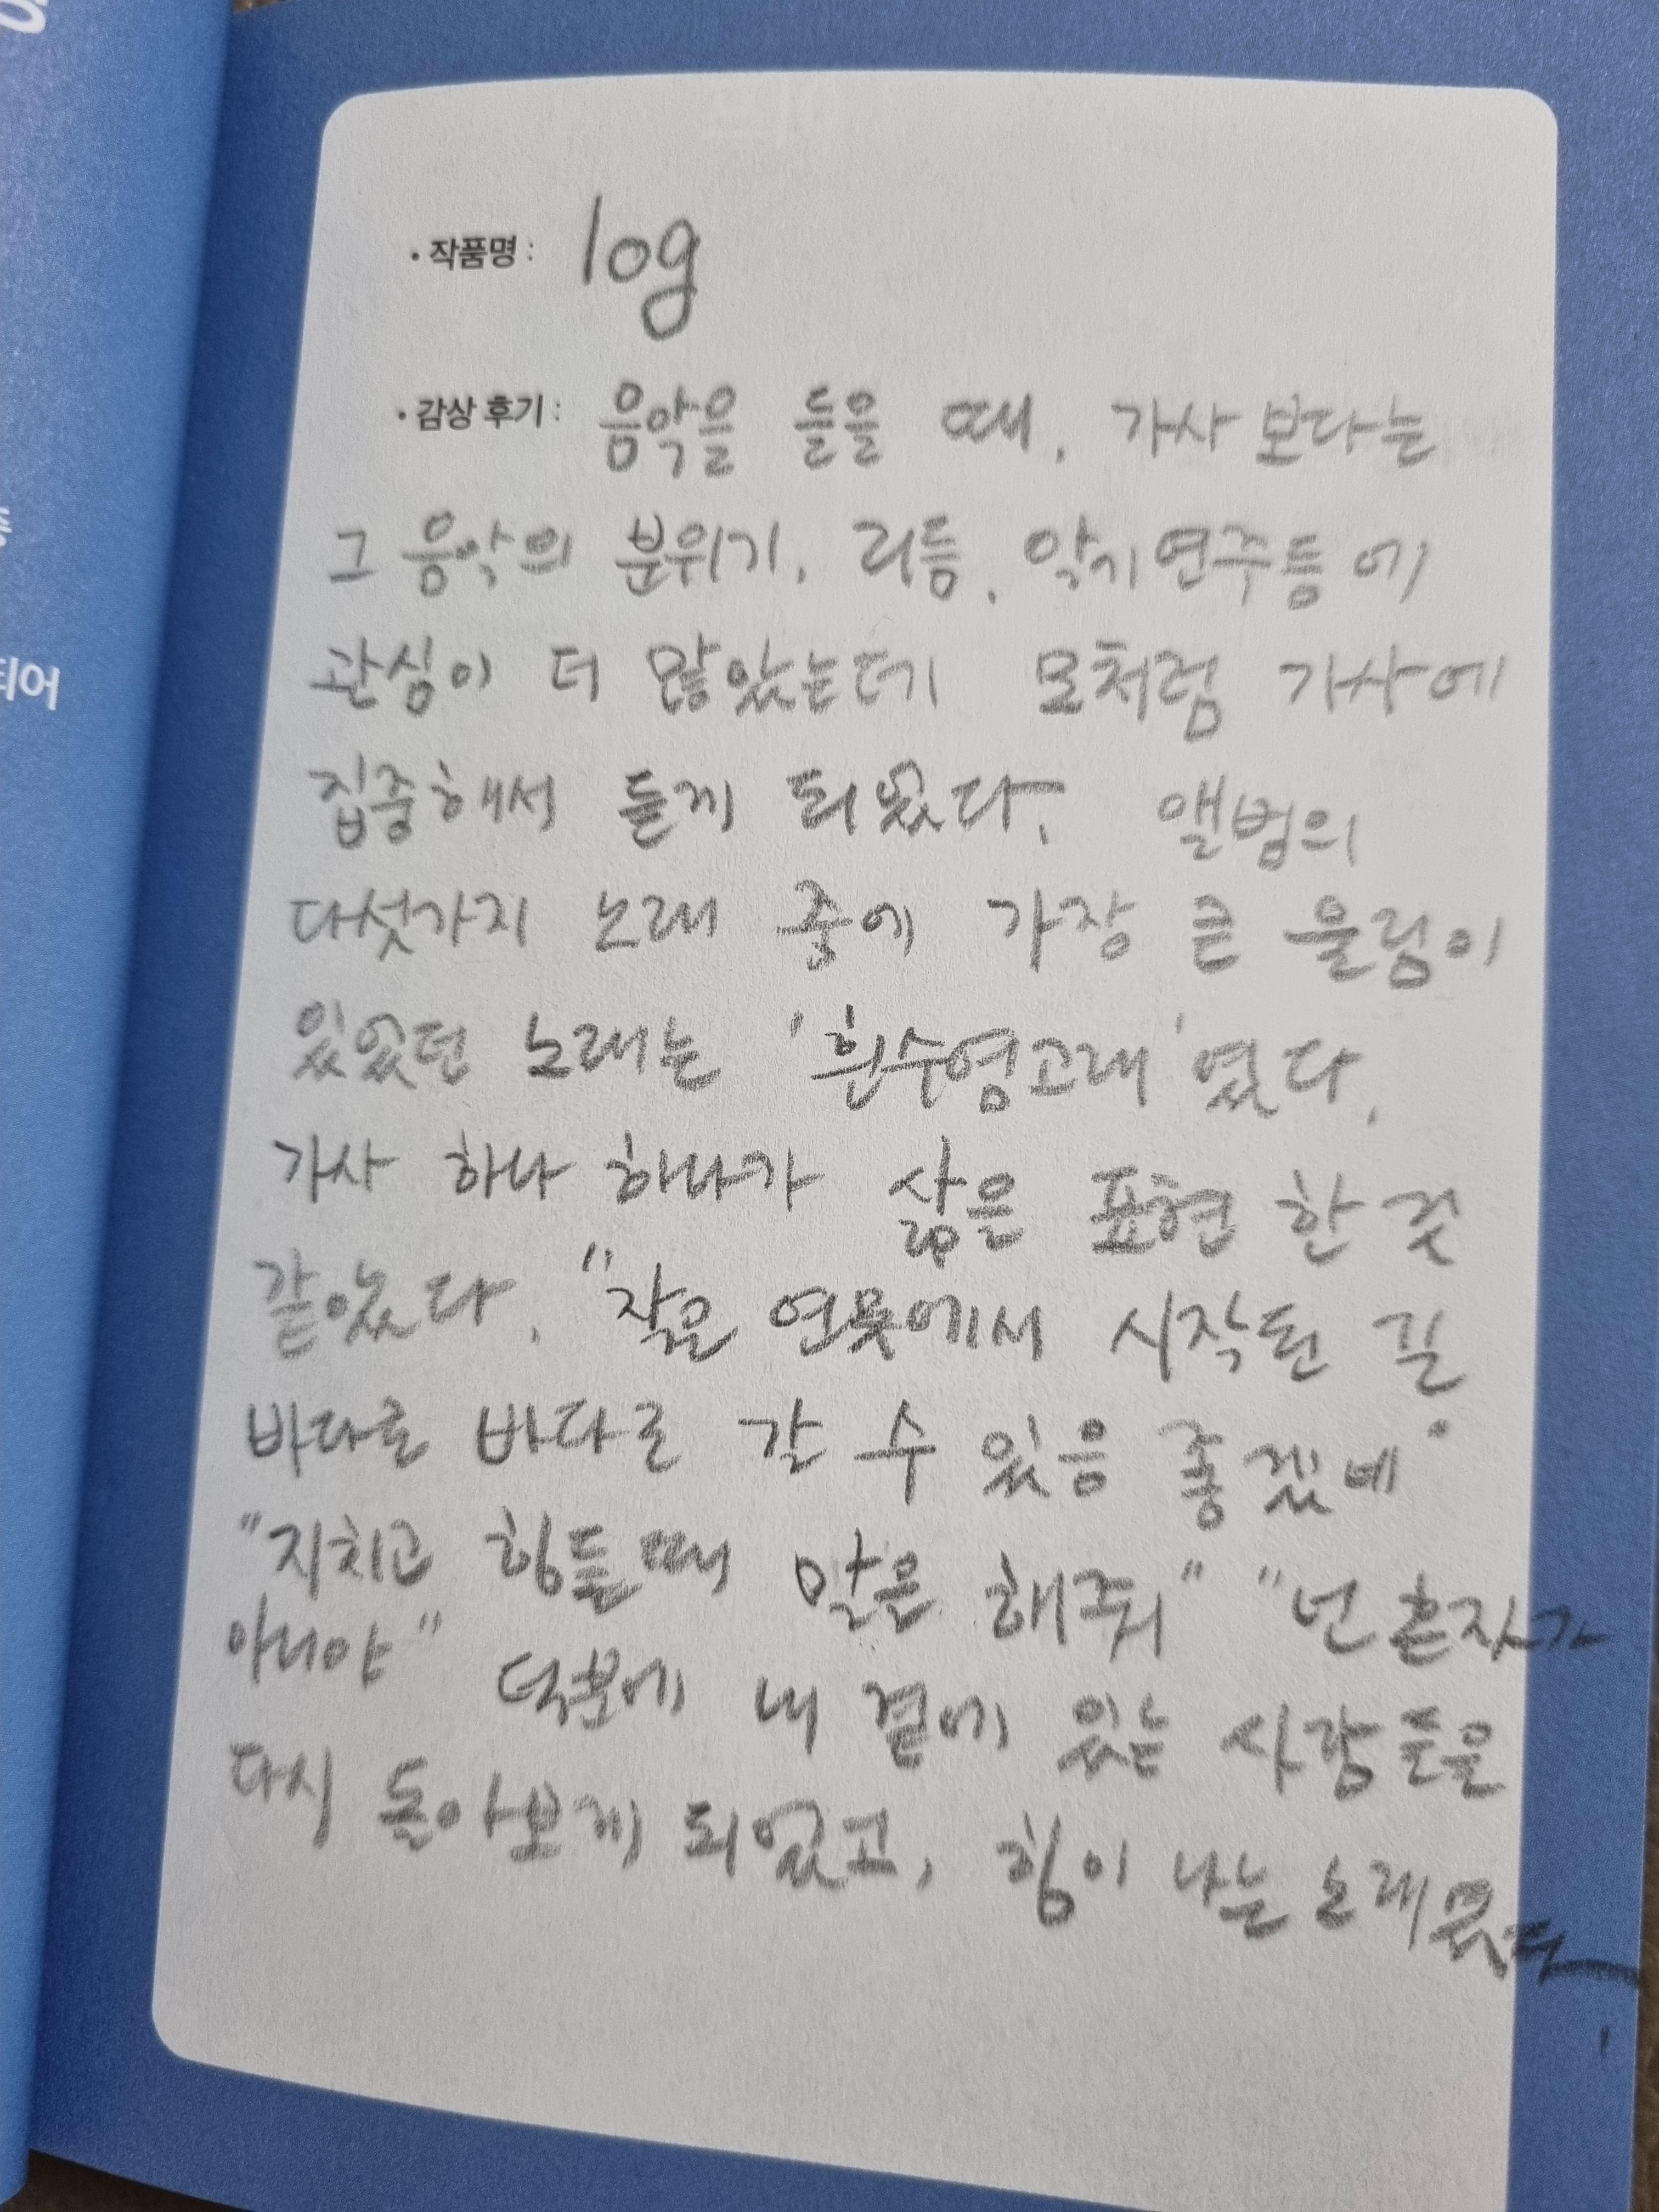 중
되어
• 작품명 : log
• 감상 후기 : 음악을 들을 때, 가사 보다는
그 음악의 분위기, 리듬, 악기연주등에
관심이 더 많았는데 모처럼 가사에
집중해서 듣게 되었다. 앨범의
다섯가지 노래 중에 가장 큰 울림이
있었던 노래는 '흰수염고래'였다.
가사 하나 하나가 삶을 표현 한 것
같았다. "작은 연못에서 시작된 길
바다로 바다로 갈 수 있음 좋겠네"
"지치고 힘들때 말은 해줘" "넌 혼자가
아니야" 덕분에 내 곁에 있는 사람들을
다시 돌아보게 되었고, 힘이 나는 노래였다